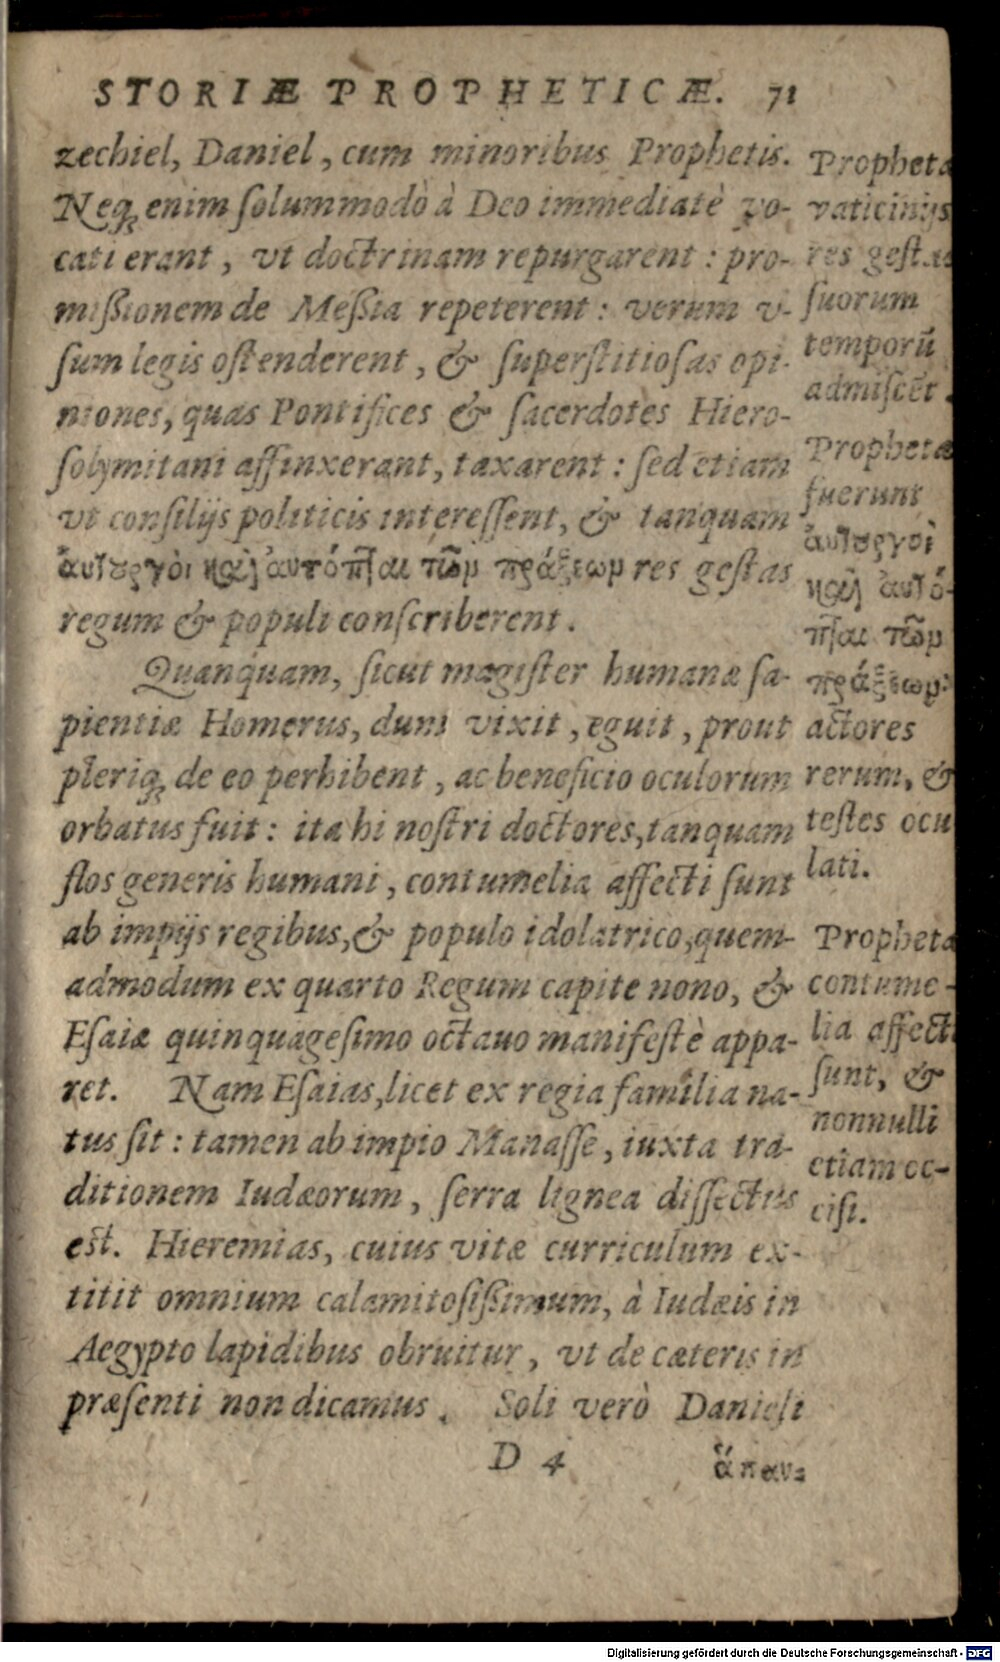 STORIÆ PROPHETICÆ. 71
zechiel, Daniel, cum minoribus Prophetis.
Neq; enim ſolummodò à Deo immediatè vo-
cati erant, vt doctrinam repurgarent: pro-
miſsionem de Meſsia repeterent: verum v-
ſum legis oſtenderent, & ſuperſtitioſas opi-
niones, quas Pontifices & ſacerdotes Hiero-
ſolymitani affinxerant, taxarent: ſed etiam
vt conſilijs politicis intereſſent, & tanquam
ἀυτουργοὶ καὶ ἀυτόπται τῶμ πράξεωμ res geſtas
regum & populi conſcriberent.
Quanquam, ſicut magiſter humanæ ſa-
pientiæ Homerus, dum vixit, eguit, prout
pleriq; de eo perhibent, ac beneficio oculorum
orbatus fuit: ita hi noſtri doctores, tanquam
flos generis humani, contumelia affecti ſunt
ab impijs regibus, & populo idolatrico, quem-
admodum ex quarto Regum capite nono, &
Eſaiæ quinquageſimo octauo manifeſtè appa-
ret. Nam Eſaias, licet ex regia familia na-
tus ſit: tamen ab impio Manaſſe, iuxta tra-
ditionem Iudæorum, ſerra lignea diſſectus
eſt. Hieremias, cuius vitæ curriculum ex-
titit omnium calamitoſiſsimum, à Iudæis in
Aegypto lapidibus obruitur, vt de cæteris in
præſenti non dicamus. Soli verò Danieli
D 4 ἅπαν-
Propheta
vaticinijs
res geſtas
ſuorum
temporū
admiſcēt.
Prophetæ
fuerunt
ἀυτουργοὶ
καὶ ἀυτό-
πται τῶμ
πράξεωμ:
actores
rerum, &
teſtes ocu
lati.
Propheta
contume-
lia affecti
ſunt, &
nonnulli
etiam oc-
ciſi.
Digitalisierung gefördert durch die Deutsche Forschungsgemeinschaft - DFG